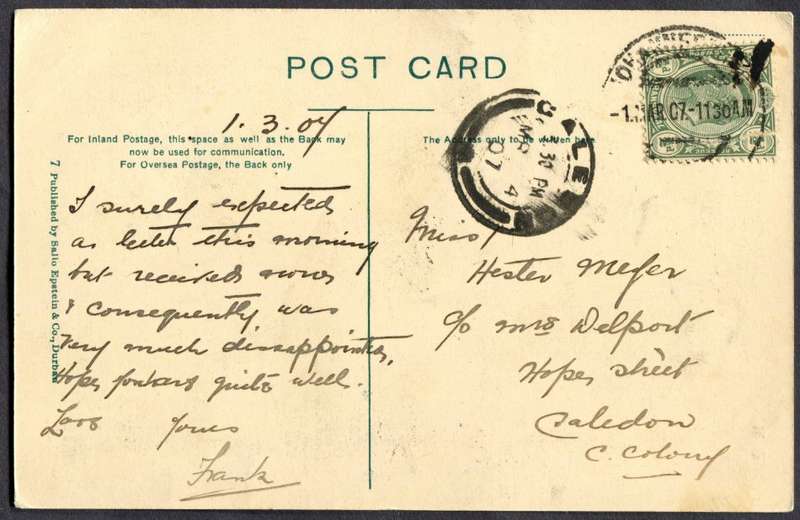 POST CARD
1.3.07
For Inland Postage, this space as well as the Back may
now be used for communication.
For Oversea Postage, the Back only
The Address only to be written here
7 Published by Sallo Epstein & Co., Durban
-1.MAR.07-1130AM
CALEDON
30 PM
MAR 4
07
I surely expected
a letter this morning
but received none
& consequently was
very much dissappointed,
Hopes quite well.
yours
Frank
Miss
Hester Meyer
c/o Mrs Delport
Hopes Street
Caledon
C. Colony